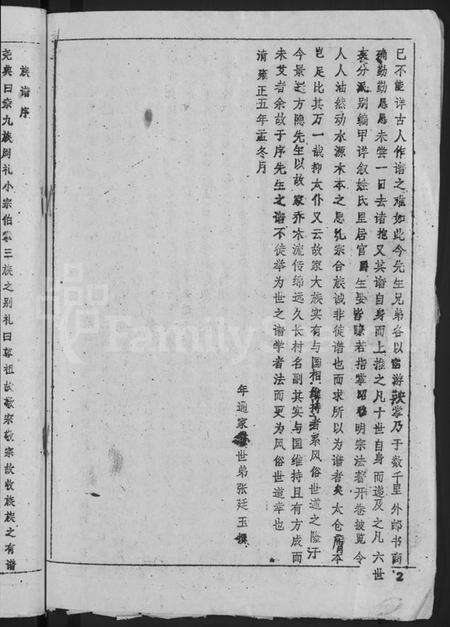 已不能详古人作谱之难如此今先生兄弟各以宦游鞅掌乃于数千里外邮书商
确勤勤恳恳未尝一日去诸抱又其谱自身而上推之凡十世自身而递及之凡六世
支分派别编甲详叙姓氏里居官爵生娶皆瞭若指掌昭穆明宗法著开卷披览令
人人油然动水源木本之思礼宗合族诚非徒谱也而求所以为谱者矣太仓
岂足比其万一哉抑太仆又云故家大族实有与国相维持者系风俗世道之隆汙
今景述方隐先生以故家乔木流传绵远久长村名副其实与国维持且有方成而
未艾者余故于序先生之谱不徒举为世之谱学者法而更为风俗世道幸也
清雍正五年孟冬月
年通家世弟张廷玉撰
族谱序
尧典曰亲九族周礼小宗伯掌三族之别礼曰尊祖故敬宗敬宗故收族族之有谱
2
FamilyS